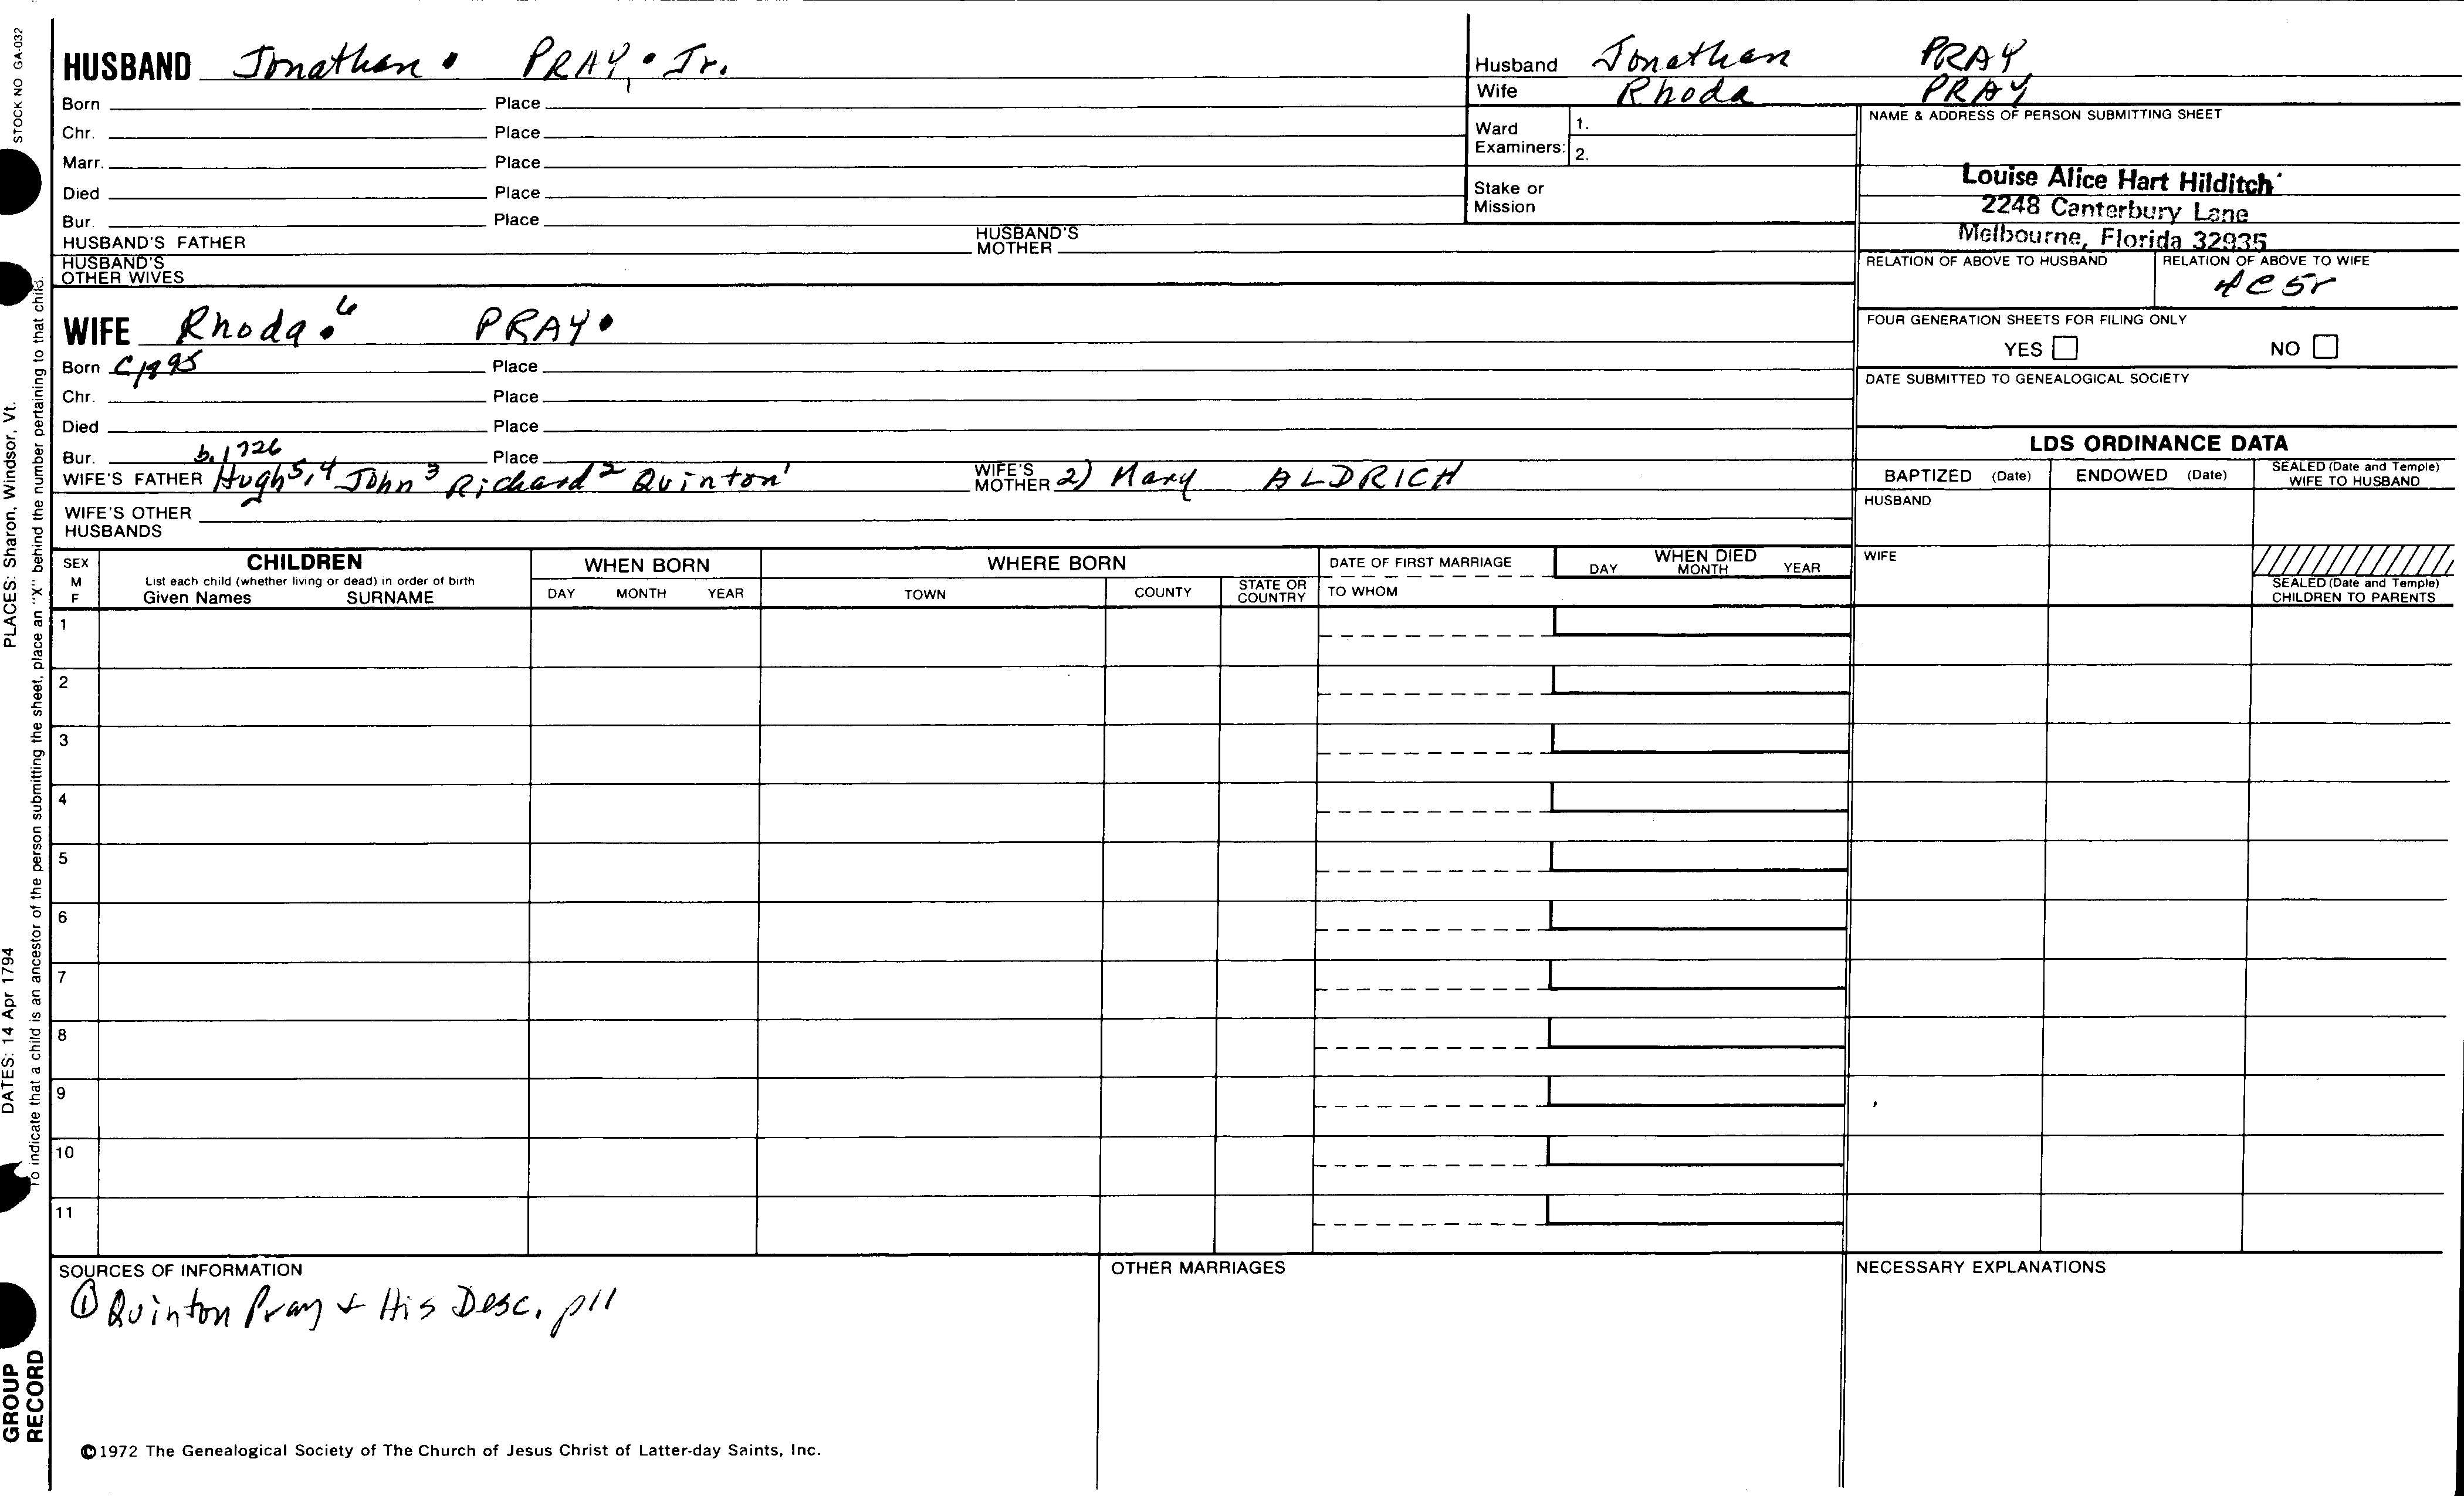 STOCK NO GA-032
PLACES: Sharon, Windsor, Vt.
DATES: 14 Apr 1794
To indicate that a child is an ancestor of the person submitting the sheet, place an "X" behind the number pertaining to that child.
GROUP
RECORD
HUSBAND Jonathan • PRAY, • Jr.
Born Place
Chr. Place
Marr. Place
Died Place
Bur. Place
HUSBAND'S FATHER HUSBAND'S MOTHER
HUSBAND'S
OTHER WIVES
WIFE Rhoda •6 PRAY •
Born Place
Chr. Place
Died Place
b. 1726
Bur. Place
WIFE'S FATHER Hugh5,4 John3 Richard2 Quinton1 WIFE'S MOTHER 2) Mary ALDRICH
WIFE'S OTHER
HUSBANDS
Husband Jonathan PRAY
Wife Rhoda PRAY
Ward
Examiners:
1.
2.
Stake or
Mission
NAME & ADDRESS OF PERSON SUBMITTING SHEET
Louise Alice Hart Hilditch
2248 Canterbury Lane
Melbourne, Florida 32935
RELATION OF ABOVE TO HUSBAND RELATION OF ABOVE TO WIFE
4C5r
FOUR GENERATION SHEETS FOR FILING ONLY
YES NO
DATE SUBMITTED TO GENEALOGICAL SOCIETY
LDS ORDINANCE DATA
BAPTIZED (Date) ENDOWED (Date) SEALED (Date and Temple) WIFE TO HUSBAND
HUSBAND
WIFE
SEALED (Date and Temple)
CHILDREN TO PARENTS
SEX
M
F
CHILDREN
List each child (whether living or dead) in order of birth
Given Names SURNAME
WHEN BORN
DAY MONTH YEAR
WHERE BORN
TOWN COUNTY STATE OR COUNTRY
DATE OF FIRST MARRIAGE
TO WHOM
WHEN DIED
DAY MONTH YEAR
1
2
3
4
5
6
7
8
9
10
11
SOURCES OF INFORMATION
① Quinton Pray + His Desc. p11
OTHER MARRIAGES
NECESSARY EXPLANATIONS
©1972 The Genealogical Society of The Church of Jesus Christ of Latter-day Saints, Inc.